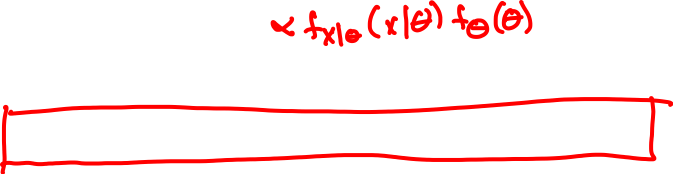 ∝ f_{X|Θ}(x|θ) f_Θ(θ)